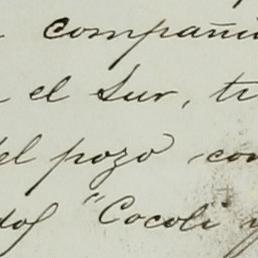 compañi
el Sur, t
del pozo con
dos "Cocoli" y